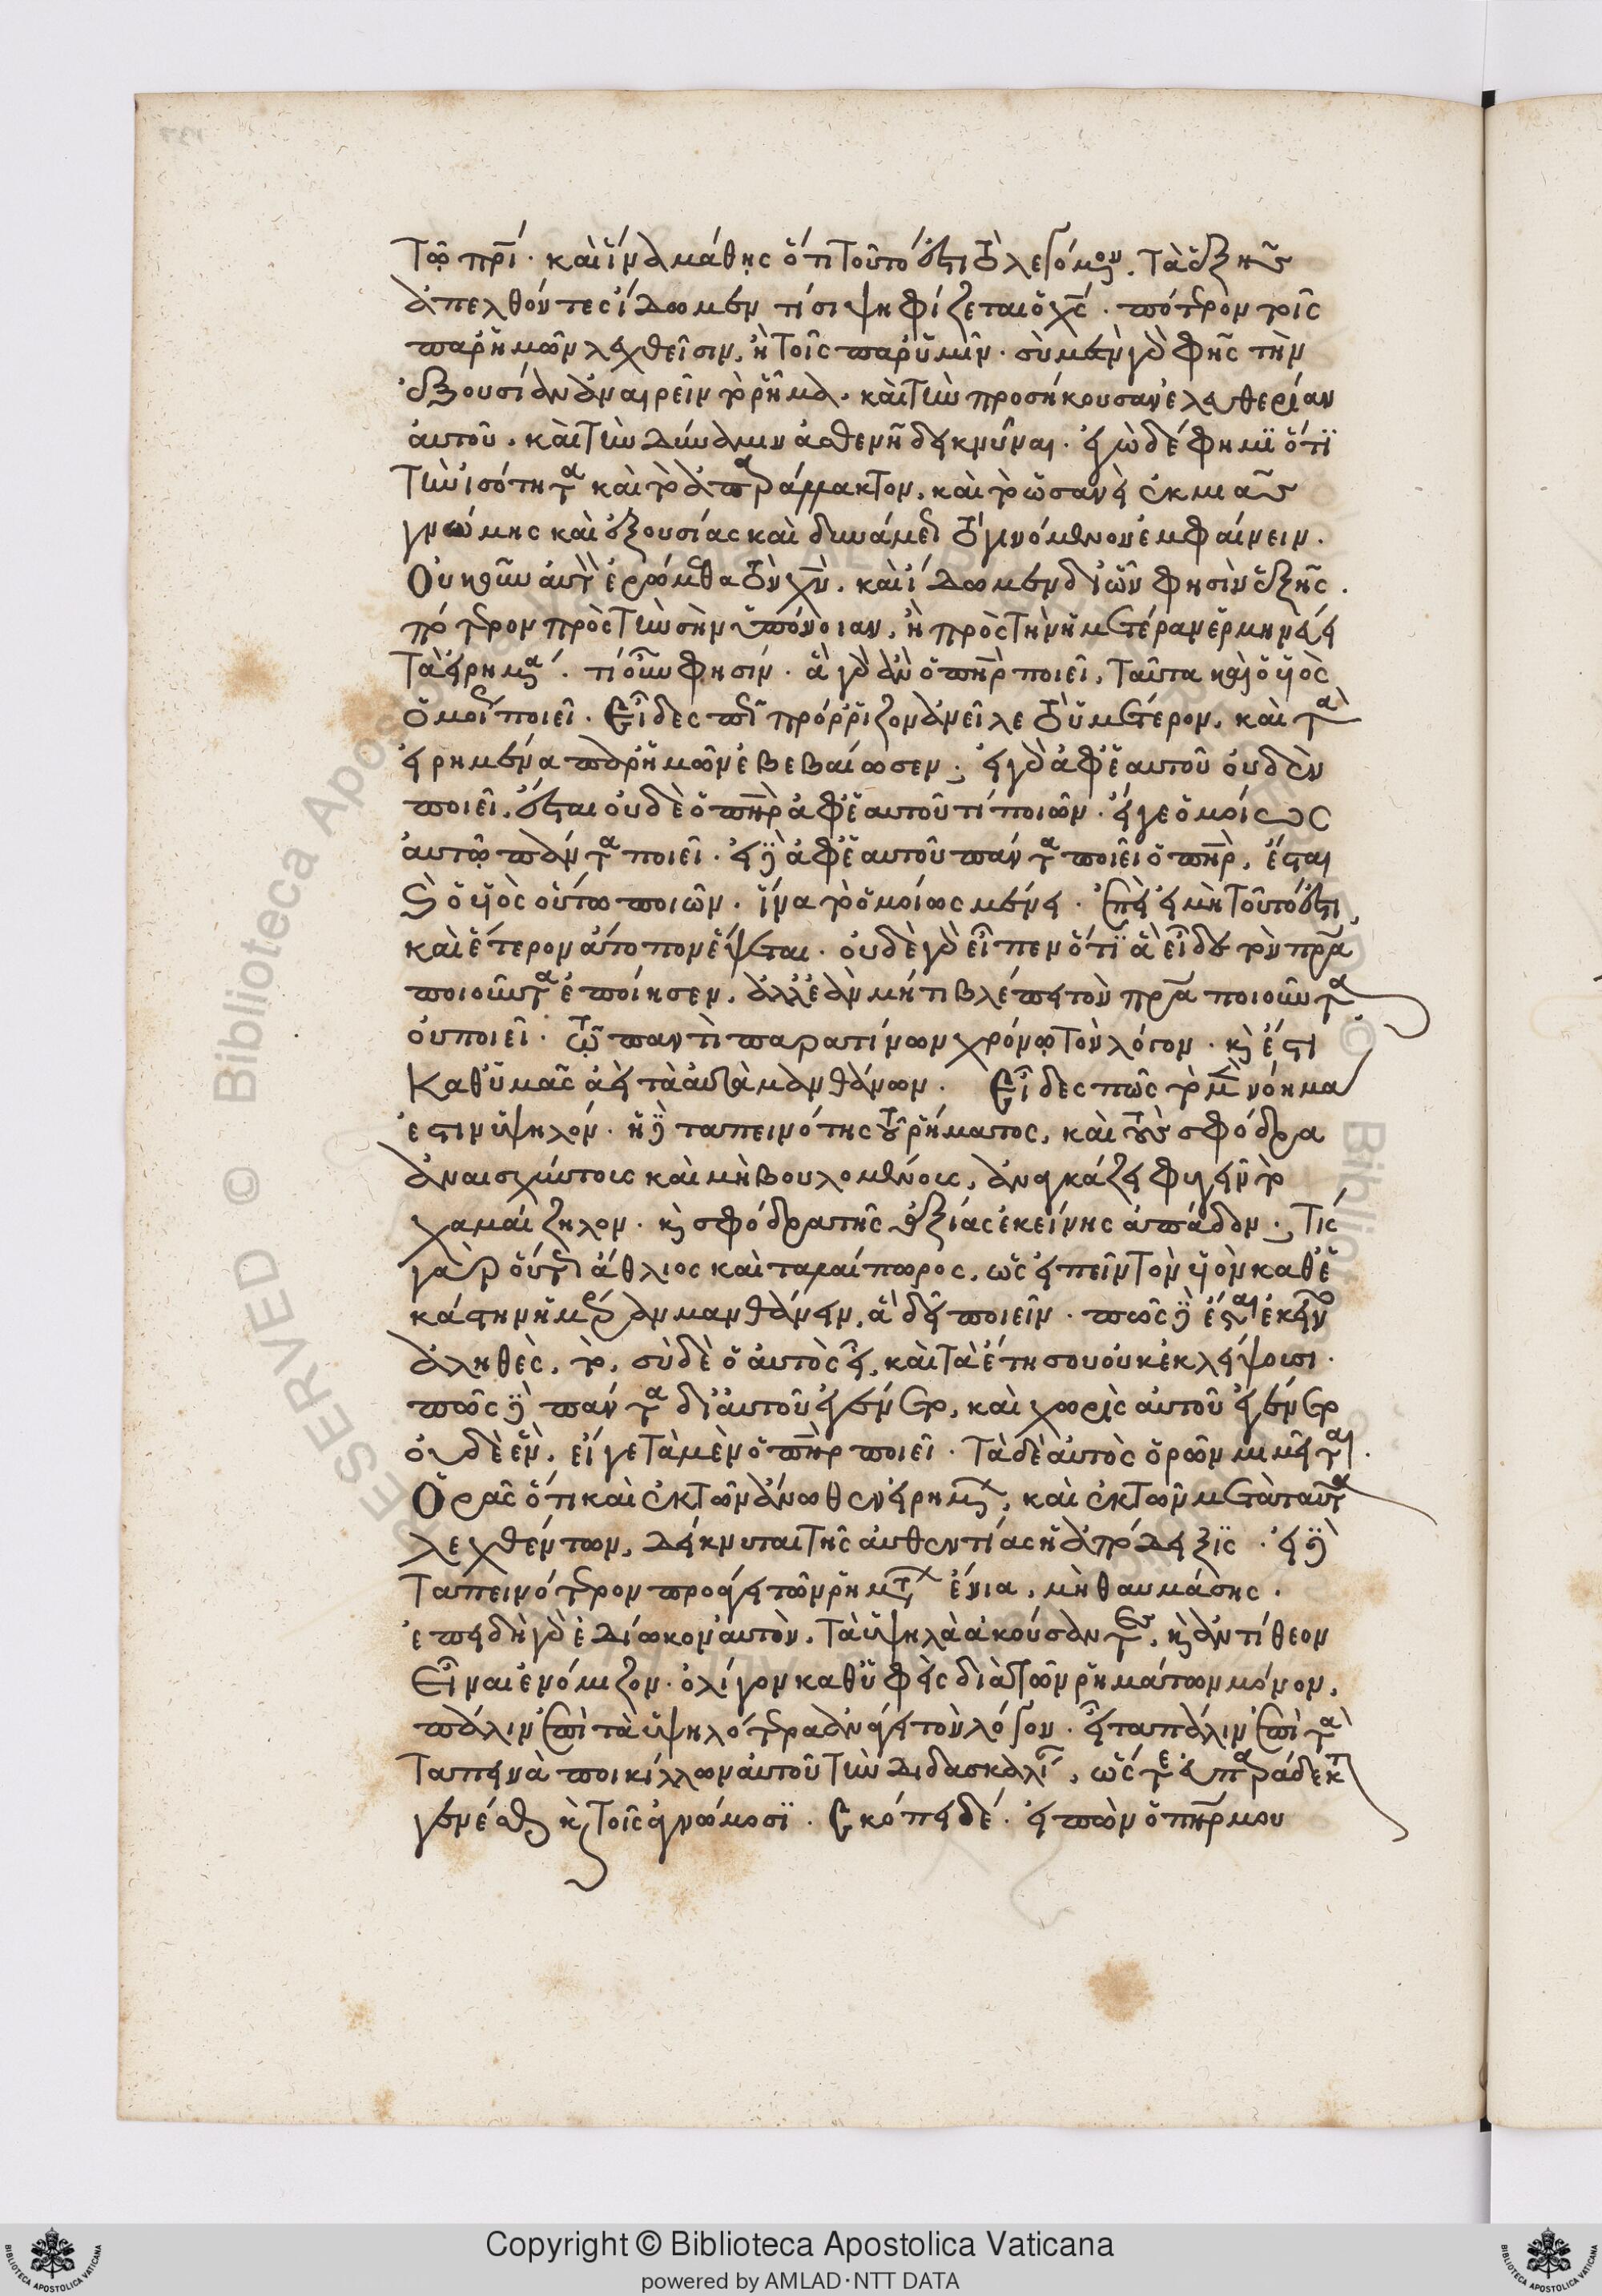 τῶ πρί· καὶ ἵνα μάθης ὅτι τοῦτό ἐστι τὸ λεγόμενον, τὰ ἑξῆς
ἀπελθόντες ἴδωμεν τίσι ψηφίζεται ὁ χς· πότερον τοῖς
παρ' ἡμῶν λεχθεῖσιν, ἢ τοῖς παρ' ὑμῖν· σὺ μὲν γὰρ φῆς τὴν
ἐξουσίαν ἀναιρεῖν τὸ ῥῆμα, καὶ τὴν προσήκουσαν ἐλευθερίαν
αὐτοῦ, καὶ τὴν δύναμιν ἀσθενῆ δεικνῦναι· ἐγὼ δέ φημι ὅτι
τὴν ἰσότητα καὶ τὸ ἀπαράλλακτον, καὶ τὸ ὡσανεὶ ἐκ μιᾶς
γνώμης καὶ ἐξουσίας καὶ δυνάμεως τὸ γινόμενον ἐμφαίνειν.
Οὐκοῦν αὐτὸν ἐρώμεθα τὸν χν, καὶ ἴδωμεν δι' ὧν φησὶν ἑξῆς.
πότερον πρὸς τὴν σὴν ὑπόνοιαν, ἢ πρὸς τὴν ἡμετέραν ἑρμηνεύει
τὰ εἰρημένα. τί οὖν φησίν· ἃ γὰρ ἂν ὁ πηρ ποιεῖ, ταῦτα καὶ ὁ υἱὸς
ὁμοίως ποιεῖ. Εἶδες πῶς πρόρριζον ἀνεῖλε τὸ ὑμέτερον, καὶ τὰ
εἰρημένα παρ' ἡμῶν ἐβεβαίωσεν; εἰ γὰρ ἀφ' ἑαυτοῦ οὐδὲν
ποιεῖ, ἔσται οὐδὲ ὁ πηρ ἀφ' ἑαυτοῦ τί ποιῶν· εἴγε ὁμοίως
αὐτῶ πάντα ποιεῖ· εἰ δὲ ἀφ' ἑαυτοῦ πάντα ποιεῖ ὁ πηρ, ἔσται
καὶ ὁ υἱὸς οὕτω ποιῶν· ἵνα τὸ ὁμοίως μένη. ἐπεὶ εἰ μὴ τοῦτό ἐστι,
καὶ ἕτερον ἄτοπον ἕψεται· οὐδὲ γὰρ εἶπεν ὅτι ἃ εἶδε τὸν πρα
ποιοῦντα ἐποίησεν, ἀλλ' ἐὰν μή τι βλέπη τὸν πρα ποιοῦντα
οὐ ποιεῖ· τῶ παντὶ παρατείνων χρόνω τὸν λόγον. καὶ ἔσται
καθ' ὑμᾶς ἀεὶ τὰ αὐτὰ μανθάνων. Εἶδες πῶς τὸ μὲν νόημα
ἐστιν ὑψηλόν· ἡ δὲ ταπεινότης τοῦ ῥήματος, καὶ τοὺς σφόδρα
ἀναισχύντοις καὶ μὴ βουλομένοις, ἀναγκάζει φυγεῖν τὸ
χαμαίζηλον, καὶ σφόδρα τῆς ἀξίας ἐκείνης ἀπάδον; τίς
γὰρ οὕτως ἄθλιος καὶ ταλαίπωρος, ὡς εἰπεῖν τὸν υἱὸν καθ' ἑ
κάστην ἡμέραν μανθάνειν, ἃ δεῖ ποιεῖν· πῶς δὲ ἔσται ἐκεῖνο
ἀληθὲς, τὸ, σὺ δὲ ὁ αὐτὸς εἶ, καὶ τὰ ἔτη σου οὐκ ἐκλείψουσι.
πῶς δὲ πάντα δι' αὐτοῦ ἐγένετο, καὶ χωρὶς αὐτοῦ ἐγένετο
οὐδὲ ἓν, εἴγε τὰ μὲν ὁ πηρ ποιεῖ· τὰ δὲ αὐτὸς ὁρῶν μιμεῖται.
Ὁρᾶς ὅτι καὶ ἐκ τῶν ἄνωθεν εἰρημένων, καὶ ἐκ τῶν μετὰ ταῦτα
λεχθέντων, δείκνυται τῆς αὐθεντίας ἡ ἀπόδειξις· εἰ δὲ
ταπεινότερον προάγει τῶν ῥημάτων ἔνια, μὴ θαυμάσης.
ἐπειδὴ γὰρ ἐδίωκον αὐτὸν, τὰ ὑψηλὰ ἀκούσαντες, καὶ ἀντίθεον
εἶναι ἐνόμιζον· ὀλίγον καθυφεὶς διὰ τῶν ῥημάτων μόνον,
πάλιν ἐπὶ τὰ ὑψηλότερα ἀνάγει τὸν λόγον· εἶτα πάλιν ἐπὶ τὰ
ταπεινὰ ποικίλλων αὐτοῦ τὴν διδασκαλίαν, ὥστε εὐπαράδεκτον
γενέσθαι καὶ τοῖς ἀγνώμοσι. Σκόπει δέ· εἰπὼν ὁ πηρ μου